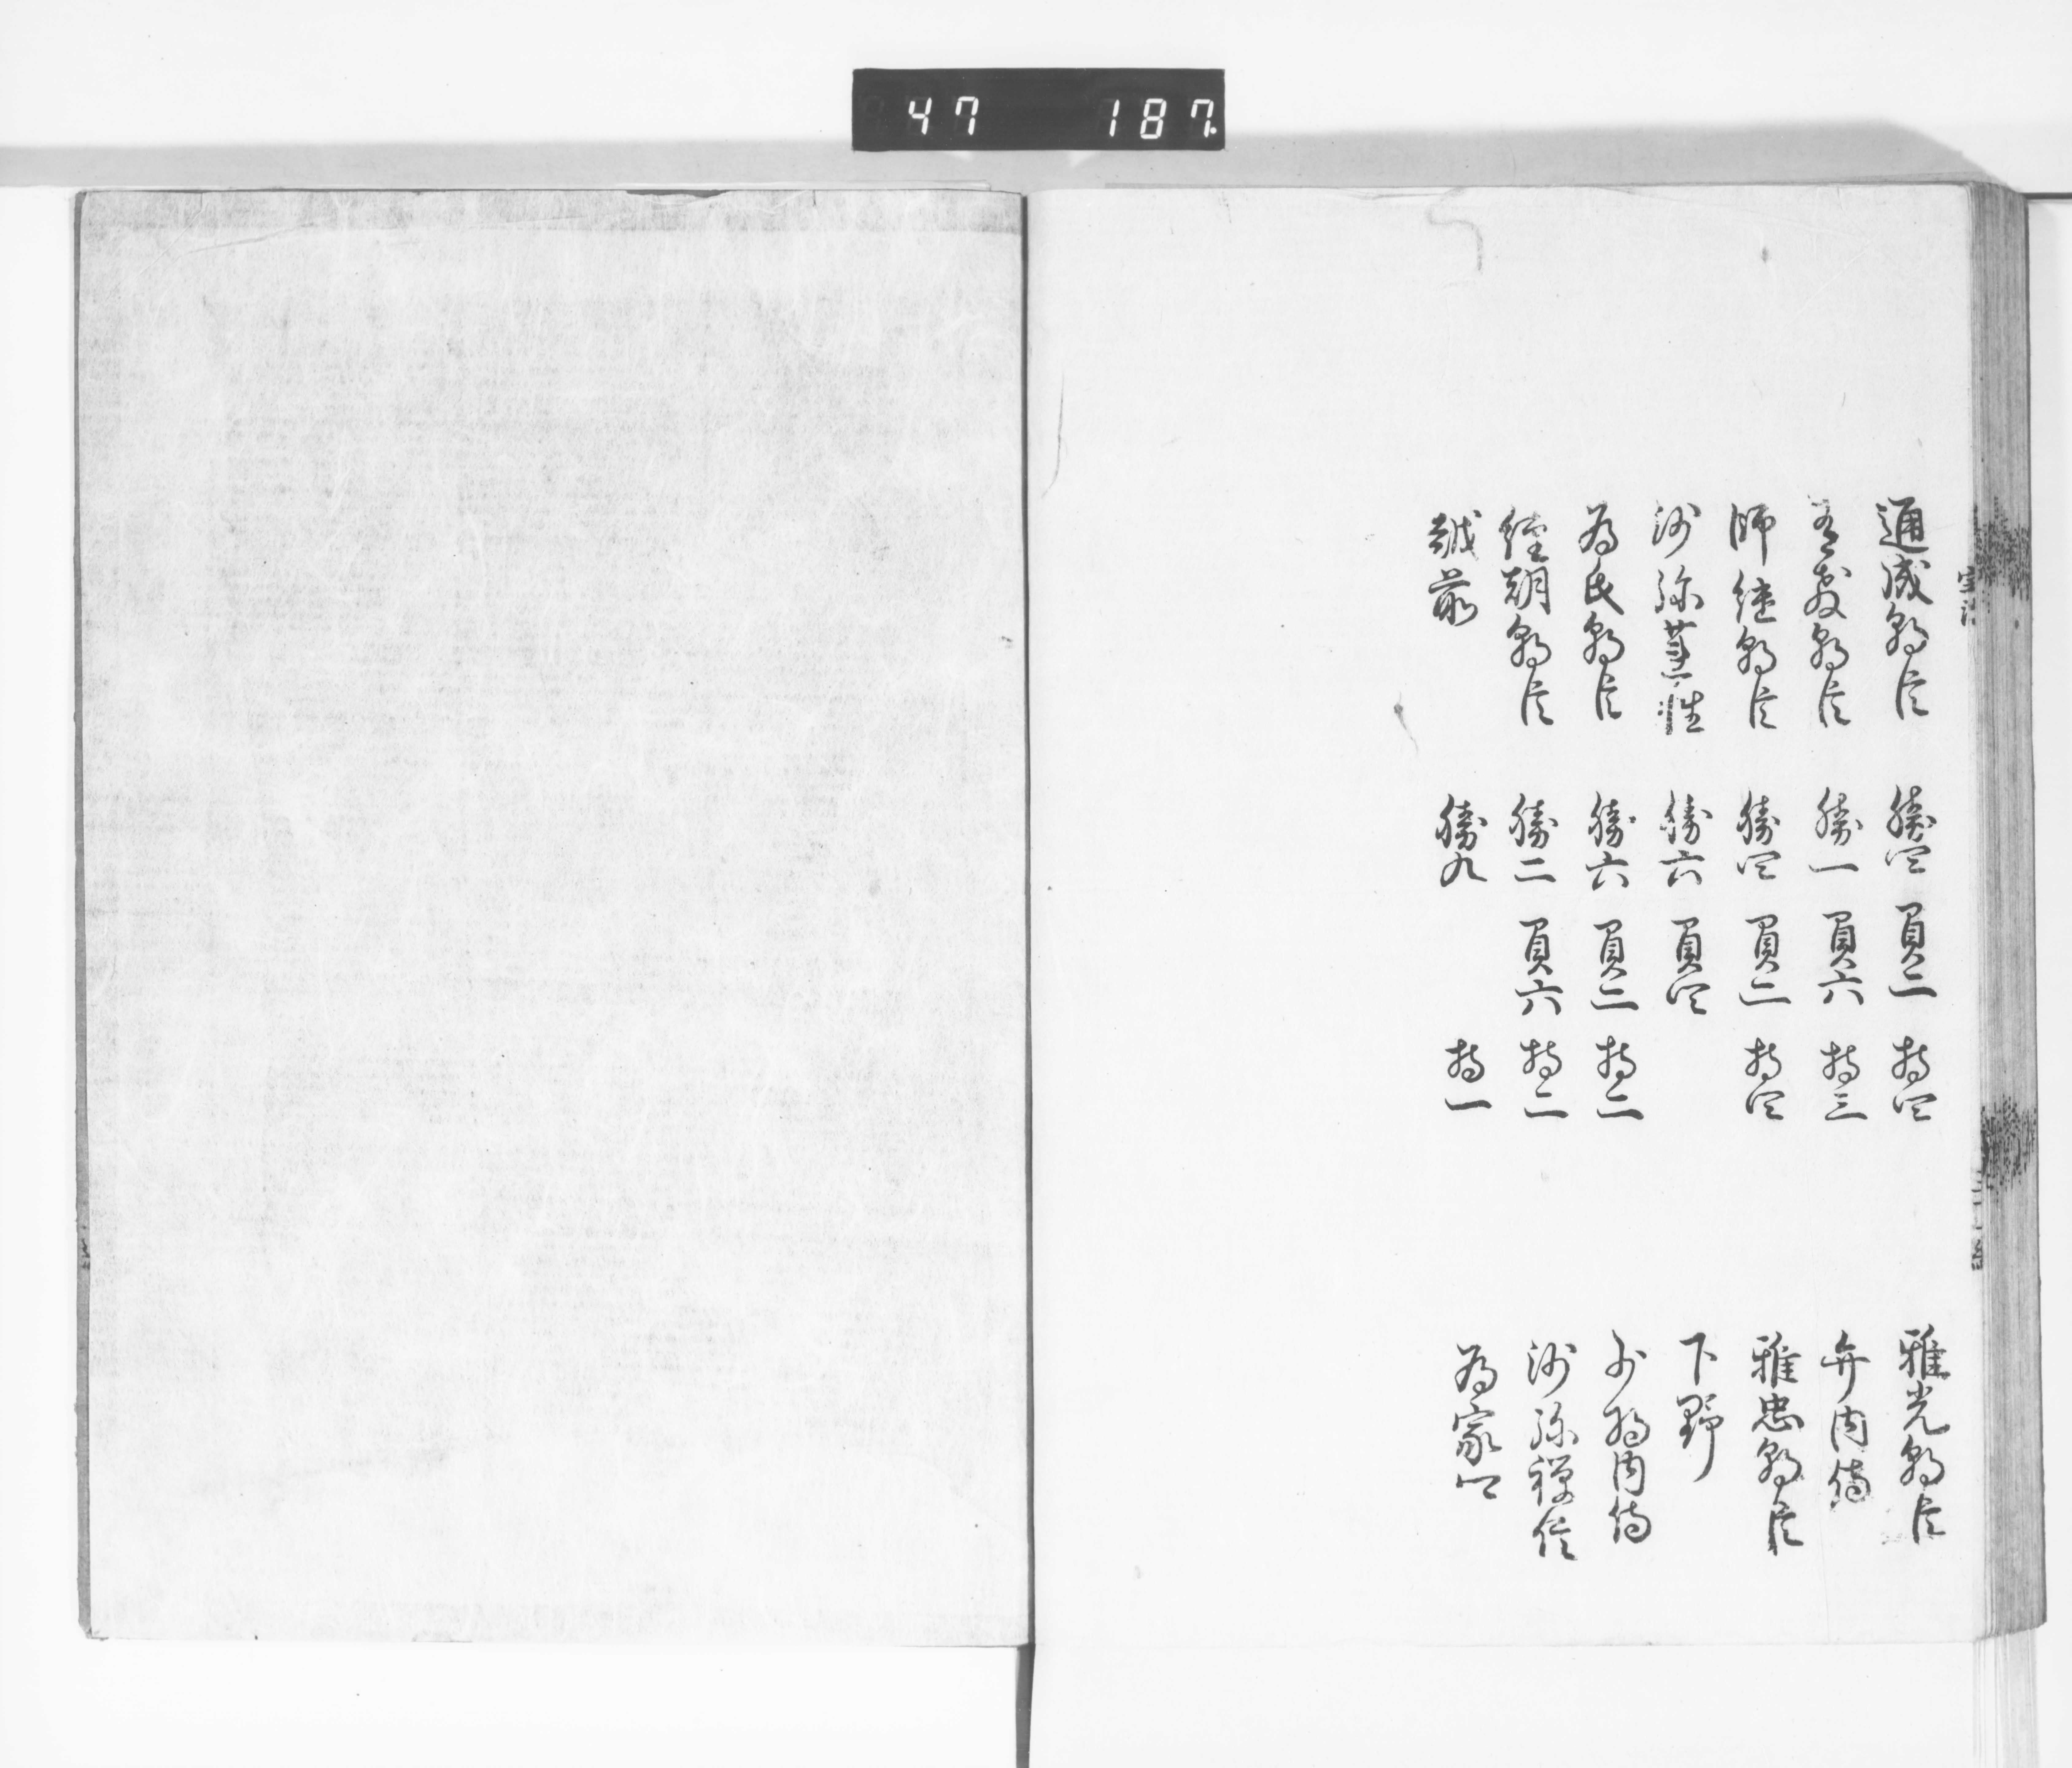 47 187
通成朝臣 勝四 負二 持四 雅光朝臣
有教朝臣 勝一 負六 持三 弁内侍
師継朝臣 勝四 負二 持四 雅忠朝臣
沙弥蓮性 勝六 負四 下野
為氏朝臣 勝六 負二 持二 少将内侍
経朝朝臣 勝二 負六 持二 沙弥禅信
越前 勝九 持一 為家卿